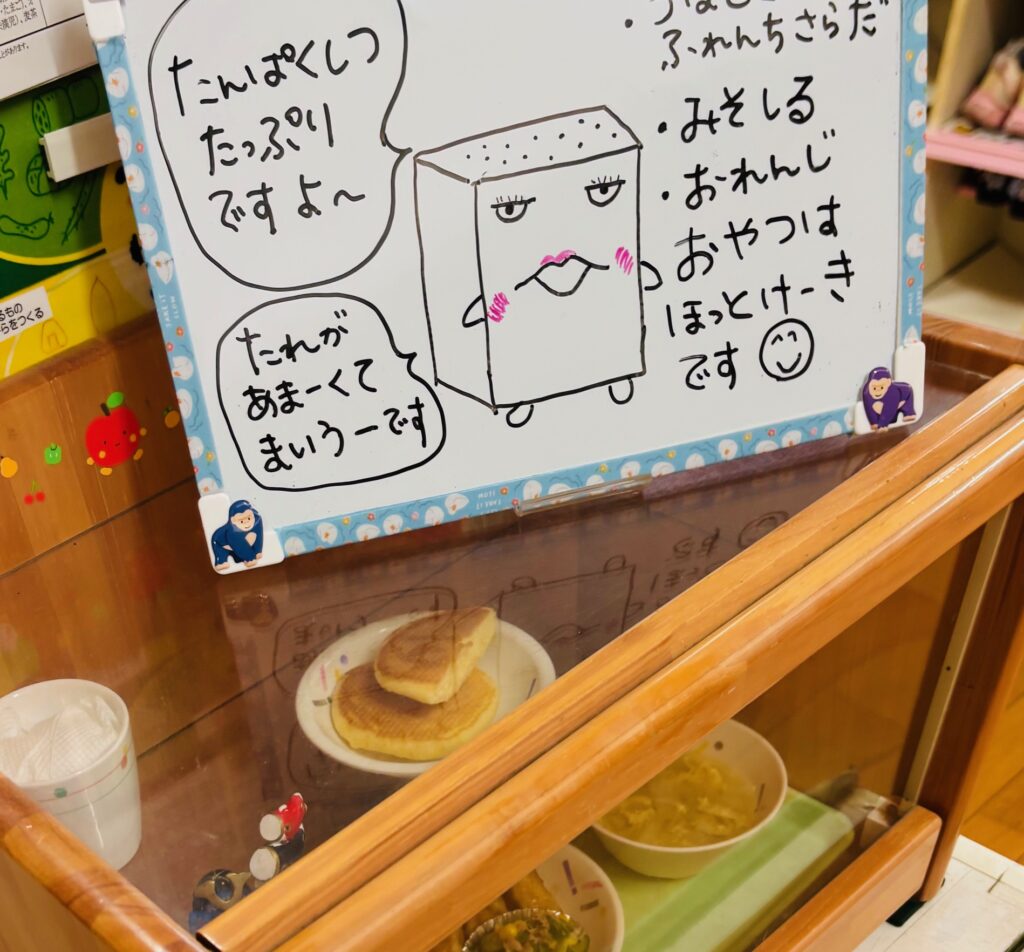 たんぱくしつ
たっぷり
ですよ〜
たれが
あまーくて
まいうーです
ふれんちさらだ
・みそしる
・おれんじ
おやつは
ほっとけーき
です
TAKE IT
SLOW
るもの
らをつくる